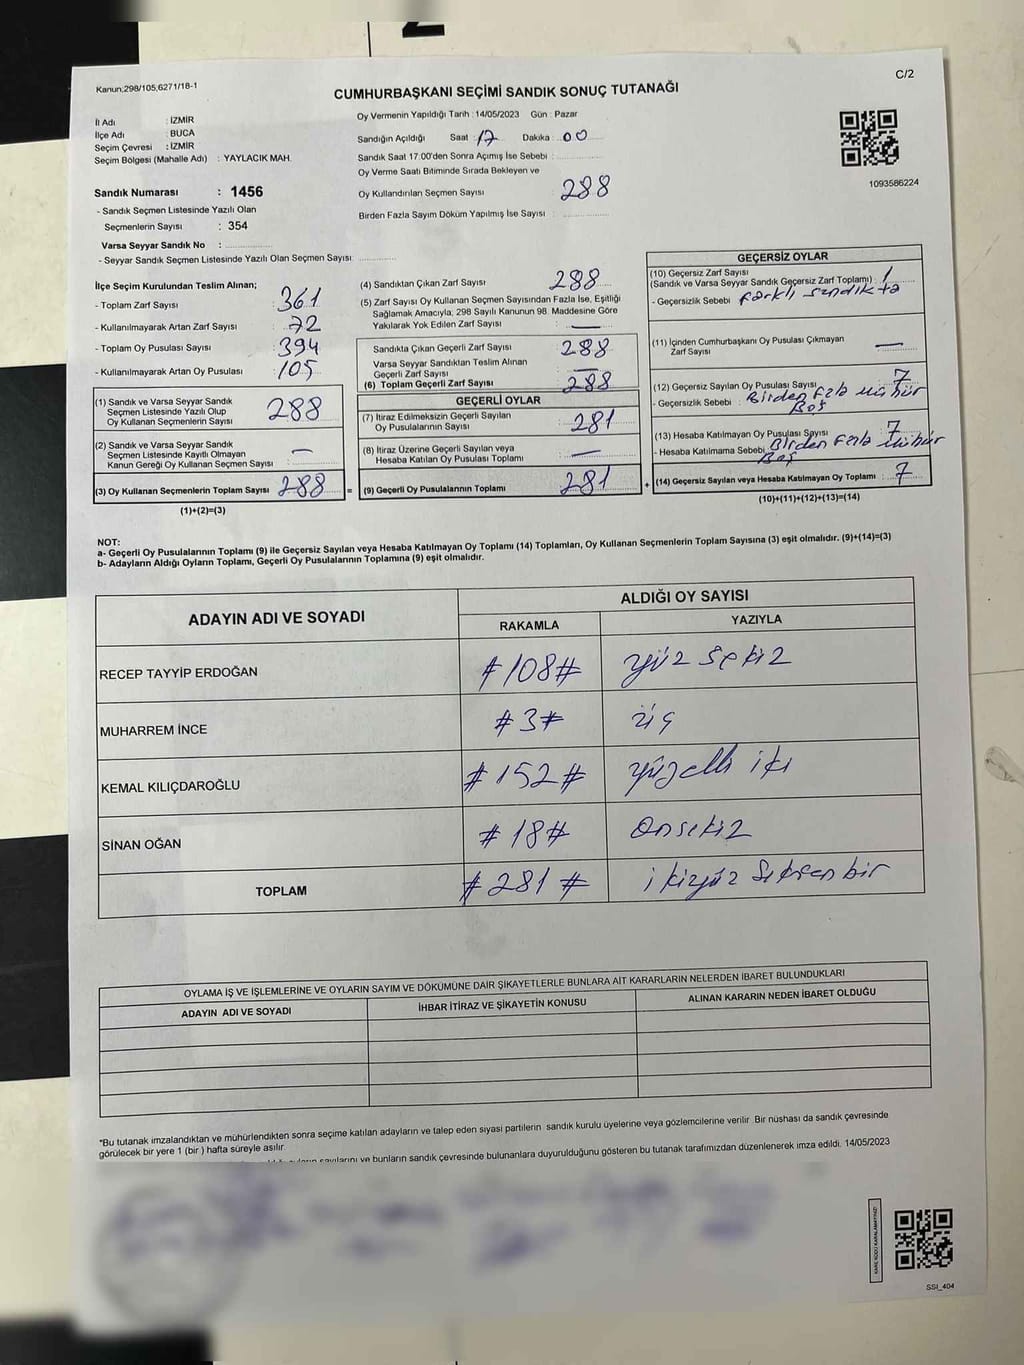 Kanun;298/105,6271/18-1
C/2
CUMHURBAŞKANI SEÇİMİ SANDIK SONUÇ TUTANAĞI
İl Adı : İZMİR
İlçe Adı : BUCA
Seçim Çevresi : İZMİR
Seçim Bölgesi (Mahalle Adı) : YAYLACIK MAH.
Sandık Numarası : 1456
- Sandık Seçmen Listesinde Yazılı Olan
Seçmenlerin Sayısı : 354
Varsa Seyyar Sandık No :
- Seyyar Sandık Seçmen Listesinde Yazılı Olan Seçmen Sayısı:
Oy Vermenin Yapıldığı Tarih : 14/05/2023 Gün : Pazar
Sandığın Açıldığı Saat : 17 Dakika : 00
Sandık Saat 17:00'den Sonra Açımış İse Sebebi :
Oy Verme Saati Bitiminde Sırada Bekleyen ve
Oy Kullandırılan Seçmen Sayısı 288
Birden Fazla Sayım Döküm Yapılmış İse Sayısı :
1093586224
İlçe Seçim Kurulundan Teslim Alınan;
- Toplam Zarf Sayısı : 361
- Kullanılmayarak Artan Zarf Sayısı : 72
- Toplam Oy Pusulası Sayısı : 394
- Kullanılmayarak Artan Oy Pusulası : 105
(1) Sandık ve Varsa Seyyar Sandık
Seçmen Listesinde Yazılı Olup
Oy Kullanan Seçmenlerin Sayısı : 288
(2) Sandık ve Varsa Seyyar Sandık
Seçmen Listesinde Kayıtlı Olmayan
Kanun Gereği Oy Kullanan Seçmen Sayısı : —
(3) Oy Kullanan Seçmenlerin Toplam Sayısı : 288 =
(1)+(2)=(3)
(4) Sandıktan Çıkan Zarf Sayısı : 288
(5) Zarf Sayısı Oy Kullanan Seçmen Sayısından Fazla İse, Eşitliği
Sağlamak Amacıyla, 298 Sayılı Kanunun 98. Maddesine Göre
Yakılarak Yok Edilen Zarf Sayısı : —
Sandıkta Çıkan Geçerli Zarf Sayısı : 288
Varsa Seyyar Sandıktan Teslim Alınan
Geçerli Zarf Sayısı : —
(6) Toplam Geçerli Zarf Sayısı : 288
GEÇERLİ OYLAR
(7) İtiraz Edilmeksizin Geçerli Sayılan
Oy Pusulalarının Sayısı : 281
(8) İtiraz Üzerine Geçerli Sayılan veya
Hesaba Katılan Oy Pusulası Toplamı : —
(9) Geçerli Oy Pusulalarının Toplamı : 281 +
GEÇERSİZ OYLAR
(10) Geçersiz Zarf Sayısı
(Sandık ve Varsa Seyyar Sandık Geçersiz Zarf Toplamı) : 1
- Geçersizlik Sebebi : farklı sandıkta
(11) İçinden Cumhurbaşkanı Oy Pusulası Çıkmayan
Zarf Sayısı : —
(12) Geçersiz Sayılan Oy Pusulası Sayısı : 7
- Geçersizlik Sebebi : Birden fzlb mühür
Boş
(13) Hesaba Katılmayan Oy Pusulası Sayısı : 7
- Hesaba Katılmama Sebebi : Birden fzlb mühür
Boş
(14) Geçersiz Sayılan veya Hesaba Katılmayan Oy Toplamı : 7
(10)+(11)+(12)+(13)=(14)
NOT:
a- Geçerli Oy Pusulalarının Toplamı (9) ile Geçersiz Sayılan veya Hesaba Katılmayan Oy Toplamı (14) Toplamları, Oy Kullanan Seçmenlerin Toplam Sayısına (3) eşit olmalıdır. (9)+(14)=(3)
b- Adayların Aldığı Oyların Toplamı, Geçerli Oy Pusulalarının Toplamına (9) eşit olmalıdır.
ADAYIN ADI VE SOYADI
ALDIĞI OY SAYISI
RAKAMLA YAZIYLA
RECEP TAYYİP ERDOĞAN #108# yüz sekiz
MUHARREM İNCE #3# üç
KEMAL KILIÇDAROĞLU #152# yüzelli iki
SİNAN OĞAN #18# onsekiz
TOPLAM #281# ikiyüz seksen bir
OYLAMA İŞ VE İŞLEMLERİNE VE OYLARIN SAYIM VE DÖKÜMÜNE DAİR ŞİKAYETLERLE BUNLARA AİT KARARLARIN NELERDEN İBARET BULUNDUKLARI
ADAYIN ADI VE SOYADI İHBAR İTİRAZ VE ŞİKAYETİN KONUSU ALINAN KARARIN NEDEN İBARET OLDUĞU
*Bu tutanak imzalandıktan ve mühürlendikten sonra seçime katılan adayların ve talep eden siyasi partilerin sandık kurulu üyelerine veya gözlemcilerine verilir. Bir nüshası da sandık çevresinde
görülecek bir yere 1 (bir ) hafta süreyle asılır.
sayılarını ve bunların sandık çevresinde bulunanlara duyurulduğunu gösteren bu tutanak tarafımızdan düzenlenerek imza edildi. 14/05/2023
KARE KODU KARALAMAYINIZ!
SSI_404